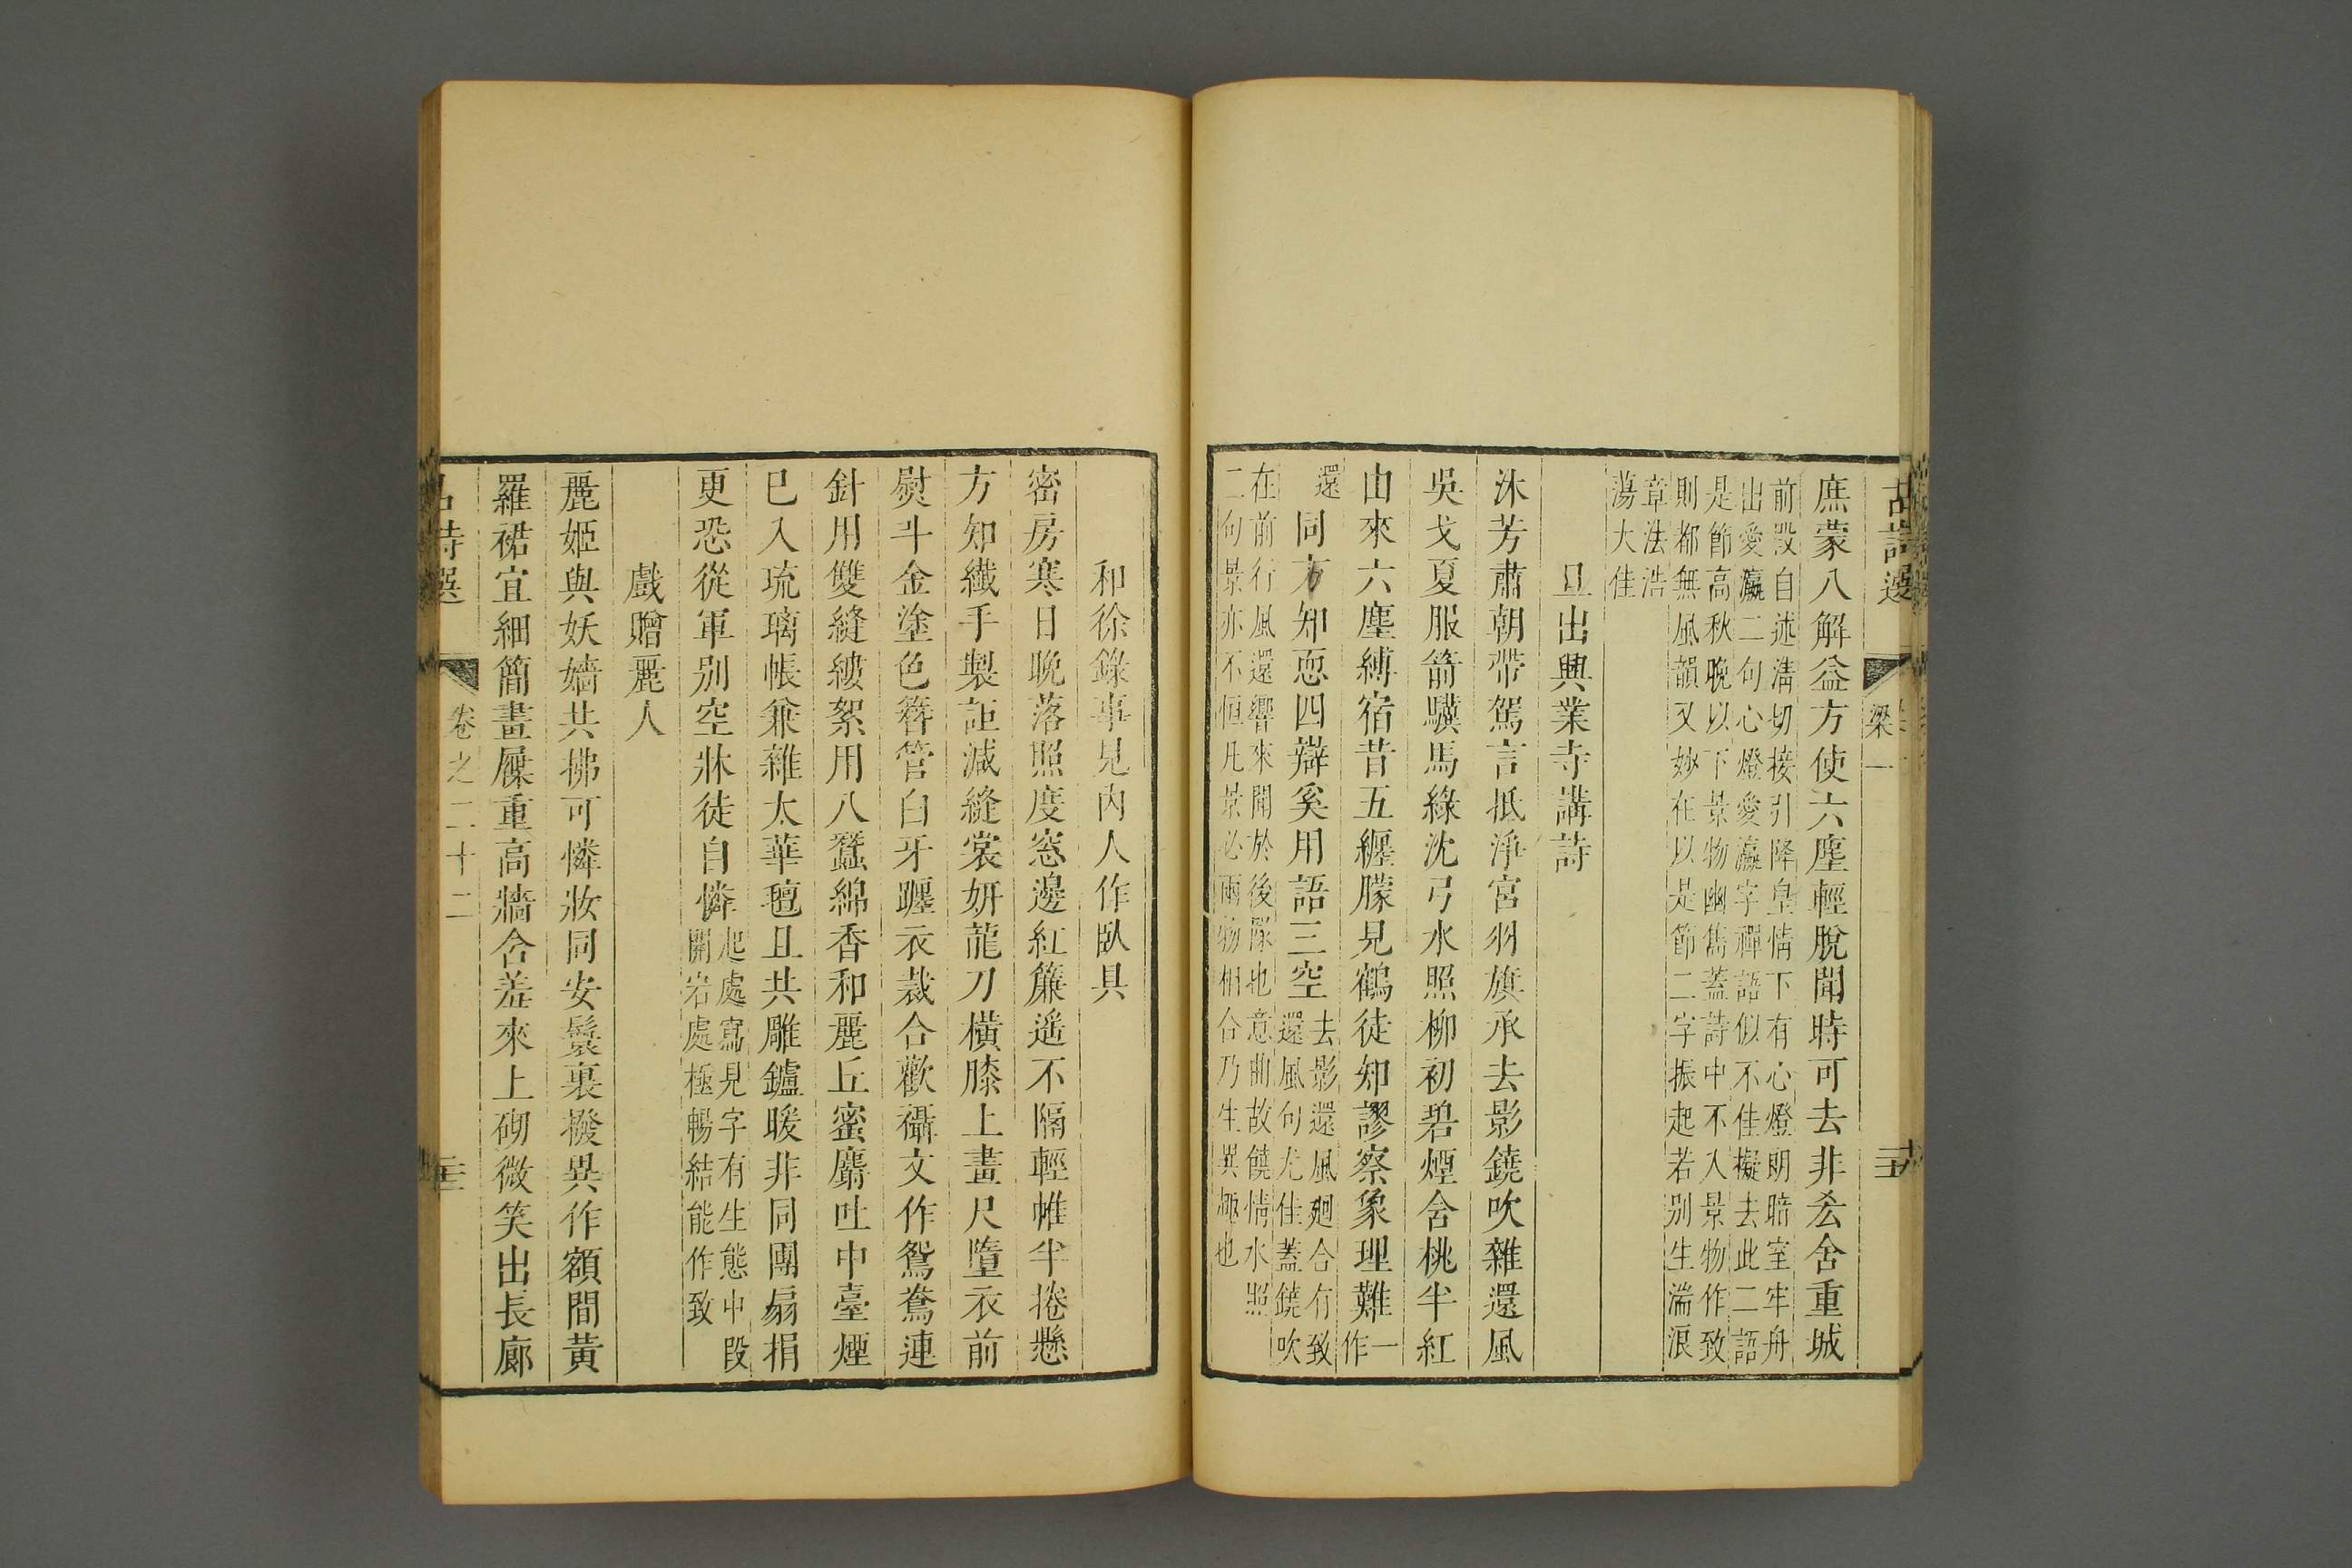 古詩選
梁一
庶蒙八解益方使六塵輕脫聞時可去非吝舍重城
前段自述淸切接引降皇情下有心燈朗暗室牢舟
出愛瀛二句心燈愛瀛字禪語似不佳擬去此二語
是節高秋晚以下景物幽雋蓋詩中不入景物作致
則都無風韻又妙在以是節二字振起若别生湍浪
章法浩
蕩大佳
旦出興業寺講詩
沐芳肅朝帶駕言抵淨宮羽旗承去影鐃吹雜還風
吳戈夏服箭驥馬綠沈弓水照柳初碧煙含桃半紅
由來六塵縛宿昔五纏朦見鶴徒知謬察象理難
一作
還
同方知恧四辯奚用語三空
去影還風廻合有致
還風句尤佳蓋鐃吹
在前行風還響來聞於後隊也意曲故饒情水照
二句景亦不恒凡景必兩物相合乃生異趣也
和徐錄事見内人作臥具
密房寒日晚落照度窓邊紅簾遥不隔輕帷半捲懸
方知纎手製詎減縫裳妍龍刀橫膝上畫尺墮衣前
熨斗金塗色簪管白牙躔衣裁合歡襵文作鴛鴦連
針用雙縫縷絮用八蠶綿香和麗丘蜜麝吐中臺煙
已入琉璃帳兼雜太華氊且共雕鑪暖非同團扇捐
更恐從軍别空牀徒自憐
起處寫見字有生態中段
開岩處極暢結能作致
戲贈麗人
麗姬與妖嬙共拂可憐妝同安鬟裏撥異作額間黃
羅裙宜細簡畫屧重高牆含羞來上砌微笑出長廊
古詩選
卷之二十二